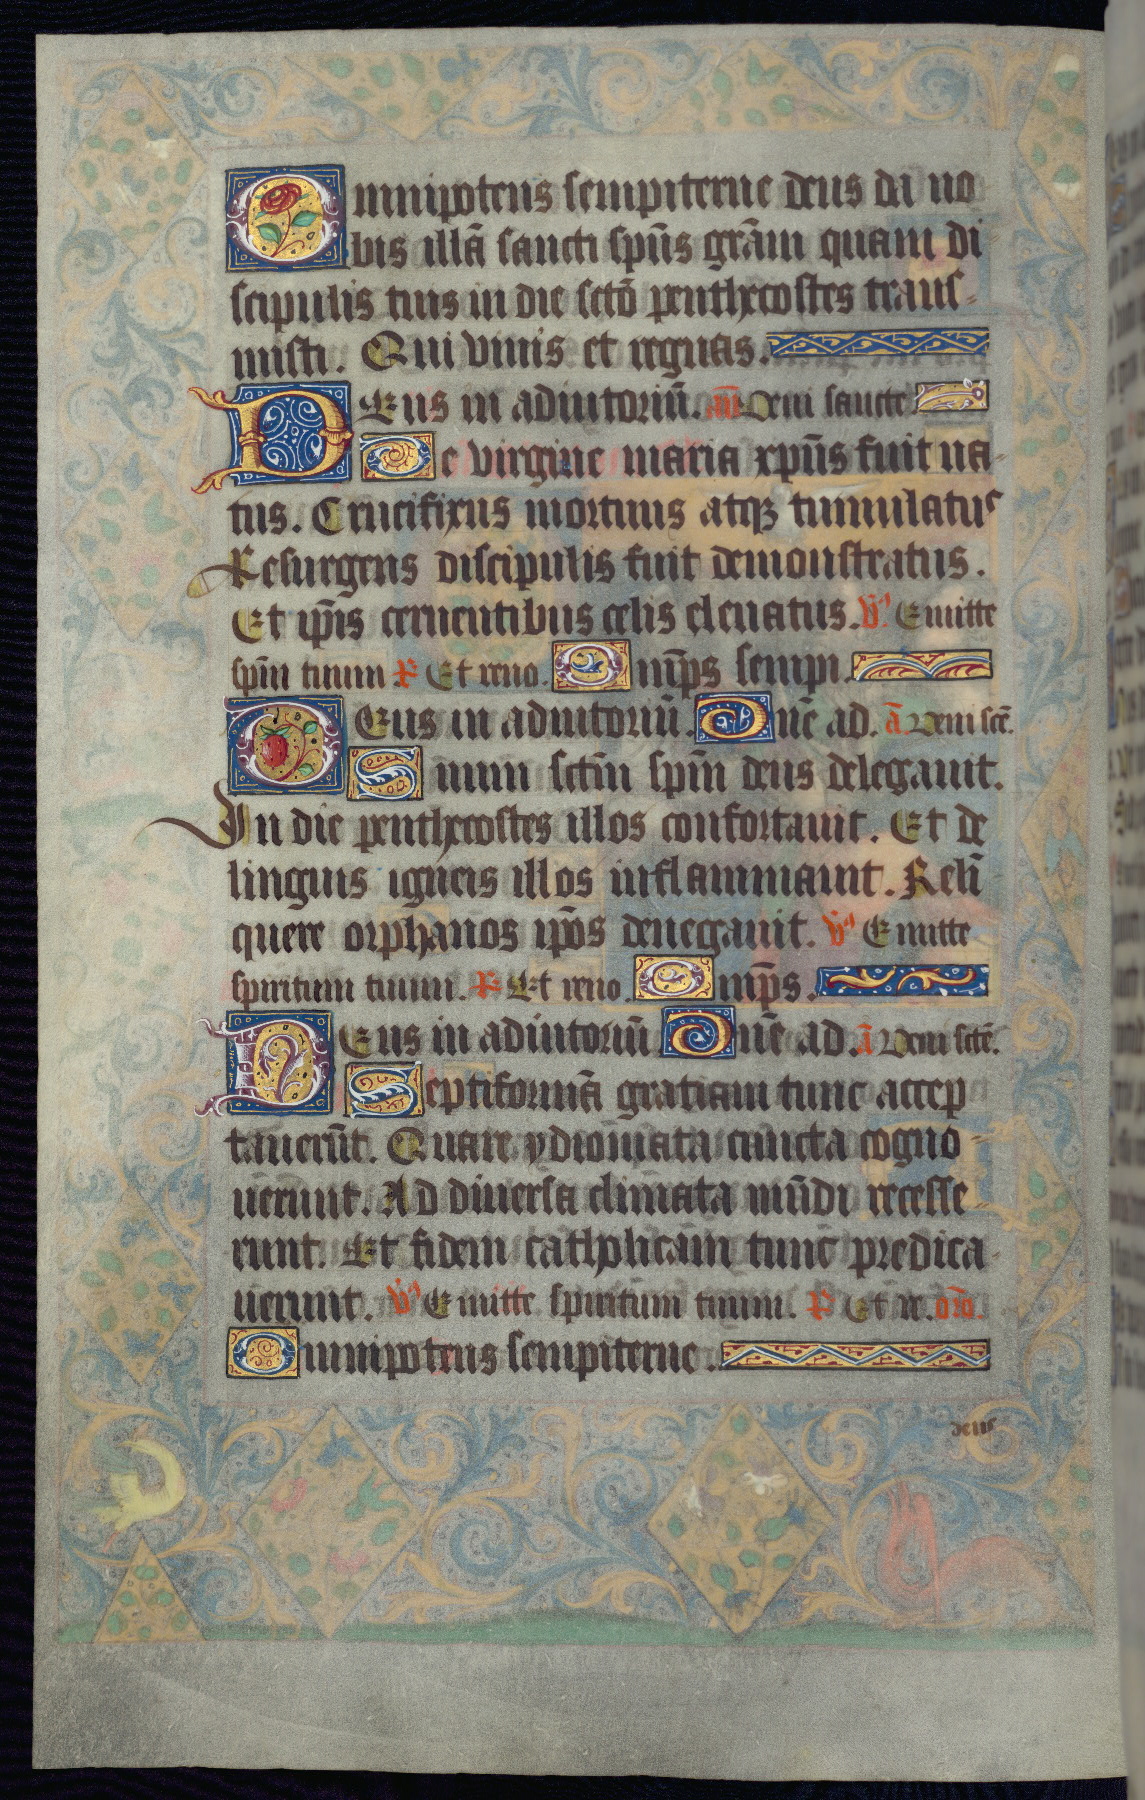 Omnipotens sempiterne deus da no
bis illā sancti sp̄us grām quam di
scipulis tuis in die sctō penthecostes trans-
misti. Qui viuis et regnas.
Deus in adiutoriū. an̄ Veni sancte.
De virgine maria xp̄us fuit na-
tus. Crucifixus mortuus atqȝ tumulatus
Resurgens discipulis fuit demonstratus.
Et ip̄is cernentibus celis eleuatus. v̄s Emitte
sp̄m tuum R Et reno. Om̄ps sempi.
Deus in adiutoriū. Dn̄e ad. ā Veni sct̄e.
Suum sct̄m sp̄m deus delegauit.
In die penthecostes illos confortauit. Et de
linguis igneis illos inflammauit. Relī
quere orphanos ip̄os denegauit. v̄s Emitte
spiritum tuum. R Et reno. Om̄ps.
Deus in adiutoriū Dn̄e ad. ā Veni sct̄e.
Septiformā gratiam tunc accep
tauerūt. Quare ydiomata cuncta cogno-
uerunt. Ad diuersa climata mūdi recesse-
runt. Et fidem catholicam tunc predica-
uerunt. v̄s Emitte spiritum tuum. R Et re. orō.
Omnipotens sempiterne.
deus